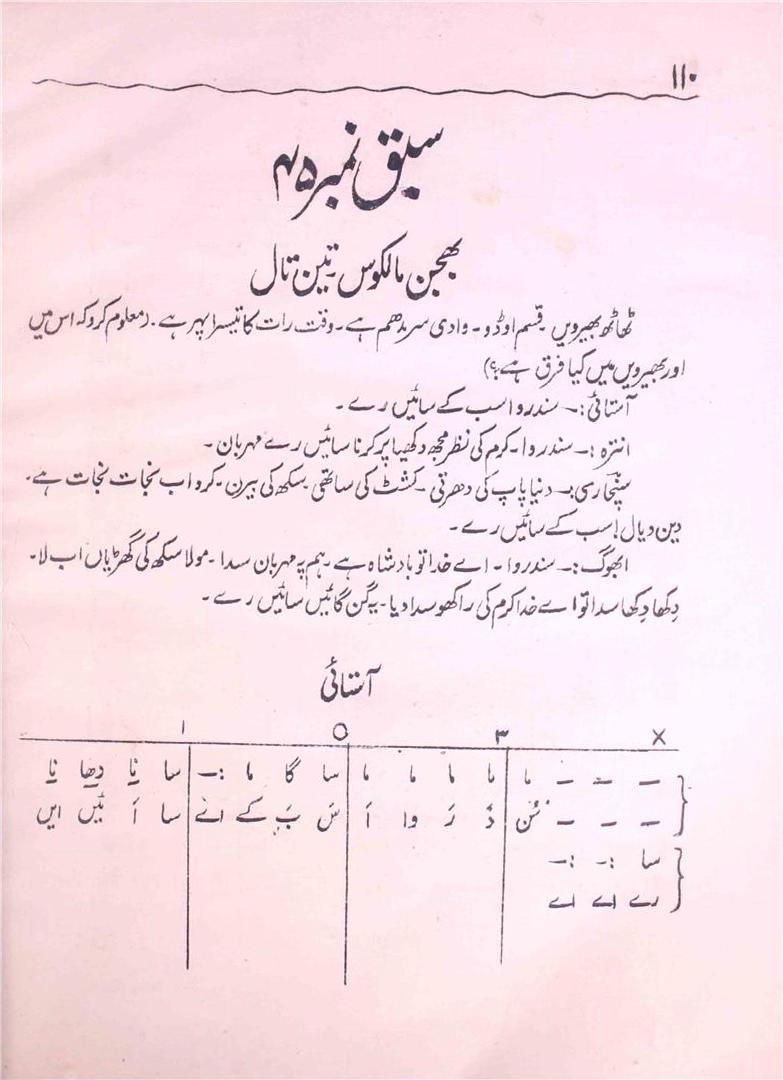 ۱۱۰
سبق نمبر ۴۵
بھجن مالکوس۔ تین تال
ٹھاٹھ بھیرویں۔ قسم اوڈو۔ وادی سر مدھم ہے۔ وقت رات کا تیسرا پہر ہے۔ (معلوم کرو کہ اس میں
اور بھیرویں میں کیا فرق ہے؟)
آستائی :۔ سندروا سب کے سائیں رے۔
انترہ :۔ سندروا۔ کرم کی نظر مجھ دکھیا پر کرنا سائیں رے مہربان۔
سنچارسی :۔ دنیا پاپ کی دھرتی۔ کشٹ کی ساتھی۔ سکھ کی بیرن۔ کرو اب نجات نجات ہے۔
دین دیال! سب کے سائیں رے۔
ابھوگ :۔ سندروا۔ اے خدا تو بادشاہ ہے۔ ہم پہ مہربان سدا۔ مولا سکھ کی گھڑیاں اب لا۔
دِکھا دِکھا سدا تو اے خدا کرم کی راکھو سدا دیا۔ یہ گن گائیں سائیں رے۔
آستائی
X ۳ O ۱
– – – ما ما ما ما ما سا گا ما :– سا نا دھا نا
– – – سُن دَ رَ وا اَ سَ بَ کے اے سا اَ ئیں ایں
سا :– :–
رے اے اے